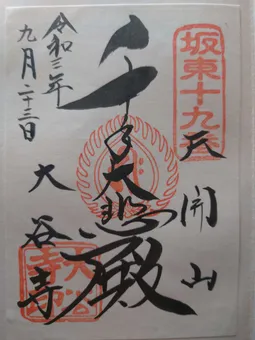 坂東十九番
天開山
千手大悲殿
大谷寺
大谷寺印
令和三年
九月二十三日